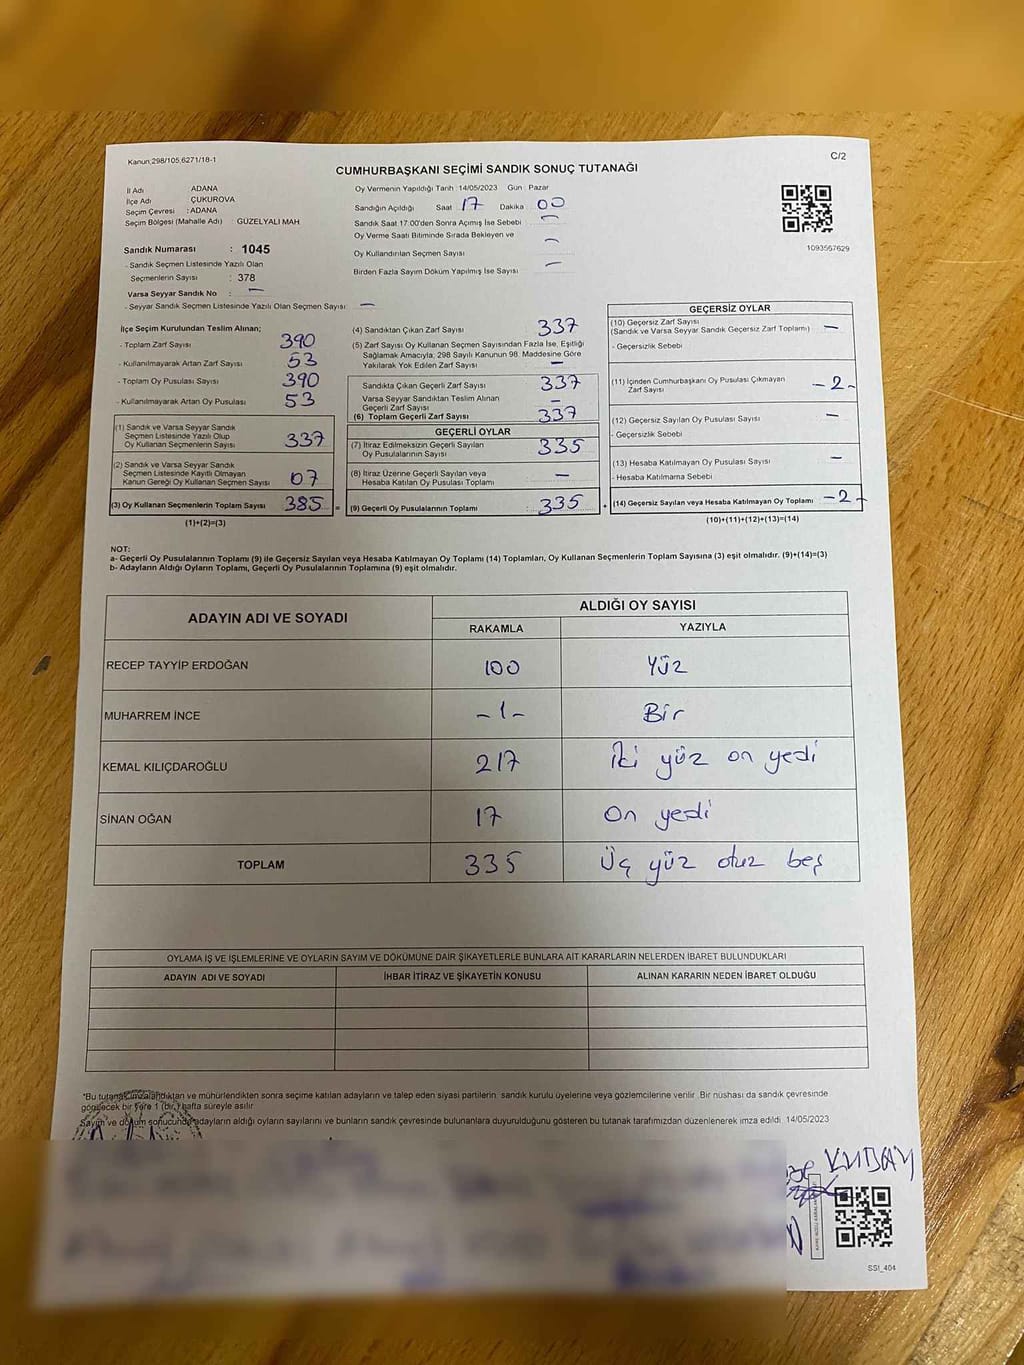 Kanun 298/105,6271/18-1
C/2
CUMHURBAŞKANI SEÇİMİ SANDIK SONUÇ TUTANAĞI
İl Adı ADANA
İlçe Adı ÇUKUROVA
Seçim Çevresi : ADANA
Seçim Bölgesi (Mahalle Adı) : GÜZELYALI MAH
Sandık Numarası : 1045
- Sandık Seçmen Listesinde Yazılı Olan
Seçmenlerin Sayısı : 378
Varsa Seyyar Sandık No : —
- Seyyar Sandık Seçmen Listesinde Yazılı Olan Seçmen Sayısı : —
Oy Vermenin Yapıldığı Tarih : 14/05/2023 Gün : Pazar
Sandığın Açıldığı Saat 17 Dakika 00
Sandık Saat 17:00'den Sonra Açımış İse Sebebi —
Oy Verme Saati Bitiminde Sırada Bekleyen ve
Oy Kullandırılan Seçmen Sayısı —
Birden Fazla Sayım Döküm Yapılmış İse Sayısı —
1093567629
İlçe Seçim Kurulundan Teslim Alınan;
- Toplam Zarf Sayısı 390
- Kullanılmayarak Artan Zarf Sayısı 53
- Toplam Oy Pusulası Sayısı 390
- Kullanılmayarak Artan Oy Pusulası 53
(1) Sandık ve Varsa Seyyar Sandık
Seçmen Listesinde Yazılı Olup
Oy Kullanan Seçmenlerin Sayısı 337
(2) Sandık ve Varsa Seyyar Sandık
Seçmen Listesinde Kayıtlı Olmayan
Kanun Gereği Oy Kullanan Seçmen Sayısı 07
(3) Oy Kullanan Seçmenlerin Toplam Sayısı 385
(1)+(2)=(3)
(4) Sandıktan Çıkan Zarf Sayısı 337
(5) Zarf Sayısı Oy Kullanan Seçmen Sayısından Fazla İse, Eşitliği
Sağlamak Amacıyla, 298 Sayılı Kanunun 98. Maddesine Göre
Yakılarak Yok Edilen Zarf Sayısı —
Sandıkta Çıkan Geçerli Zarf Sayısı 337
Varsa Seyyar Sandıktan Teslim Alınan
Geçerli Zarf Sayısı —
(6) Toplam Geçerli Zarf Sayısı 337
GEÇERLİ OYLAR
(7) İtiraz Edilmeksizin Geçerli Sayılan
Oy Pusulalarının Sayısı 335
(8) İtiraz Üzerine Geçerli Sayılan veya
Hesaba Katılan Oy Pusulası Toplamı —
= (9) Geçerli Oy Pusulalarının Toplamı : 335
GEÇERSİZ OYLAR
(10) Geçersiz Zarf Sayısı
(Sandık ve Varsa Seyyar Sandık Geçersiz Zarf Toplamı) —
- Geçersizlik Sebebi
(11) İçinden Cumhurbaşkanı Oy Pusulası Çıkmayan
Zarf Sayısı - 2 -
(12) Geçersiz Sayılan Oy Pusulası Sayısı —
- Geçersizlik Sebebi
(13) Hesaba Katılmayan Oy Pusulası Sayısı —
- Hesaba Katılmama Sebebi
+ (14) Geçersiz Sayılan veya Hesaba Katılmayan Oy Toplamı - 2 -
(10)+(11)+(12)+(13)=(14)
NOT:
a- Geçerli Oy Pusulalarının Toplamı (9) ile Geçersiz Sayılan veya Hesaba Katılmayan Oy Toplamı (14) Toplamları, Oy Kullanan Seçmenlerin Toplam Sayısına (3) eşit olmalıdır. (9)+(14)=(3)
b- Adayların Aldığı Oyların Toplamı, Geçerli Oy Pusulalarının Toplamına (9) eşit olmalıdır.
ADAYIN ADI VE SOYADI ALDIĞI OY SAYISI
RAKAMLA YAZIYLA
RECEP TAYYİP ERDOĞAN 100 Yüz
MUHARREM İNCE - 1 - Bir
KEMAL KILIÇDAROĞLU 217 İki yüz on yedi
SİNAN OĞAN 17 On yedi
TOPLAM 335 Üç yüz otuz beş
OYLAMA İŞ VE İŞLEMLERİNE VE OYLARIN SAYIM VE DÖKÜMÜNE DAİR ŞİKAYETLERLE BUNLARA AİT KARARLARIN NELERDEN İBARET BULUNDUKLARI
ADAYIN ADI VE SOYADI İHBAR İTİRAZ VE ŞİKAYETİN KONUSU ALINAN KARARIN NEDEN İBARET OLDUĞU
*Bu tutanak imzalandıktan ve mühürlendikten sonra seçime katılan adayların ve talep eden siyasi partilerin sandık kurulu üyelerine veya gözlemcilerine verilir. Bir nüshası da sandık çevresinde
görülecek bir yere 1 (bir) hafta süreyle asılır
Sayım ve döküm sonucunda adayların aldığı oyların sayılarını ve bunların sandık çevresinde bulunanlara duyurulduğunu gösteren bu tutanak tarafımızdan düzenlenerek imza edildi. 14/05/2023
KUBAY
SSI_404